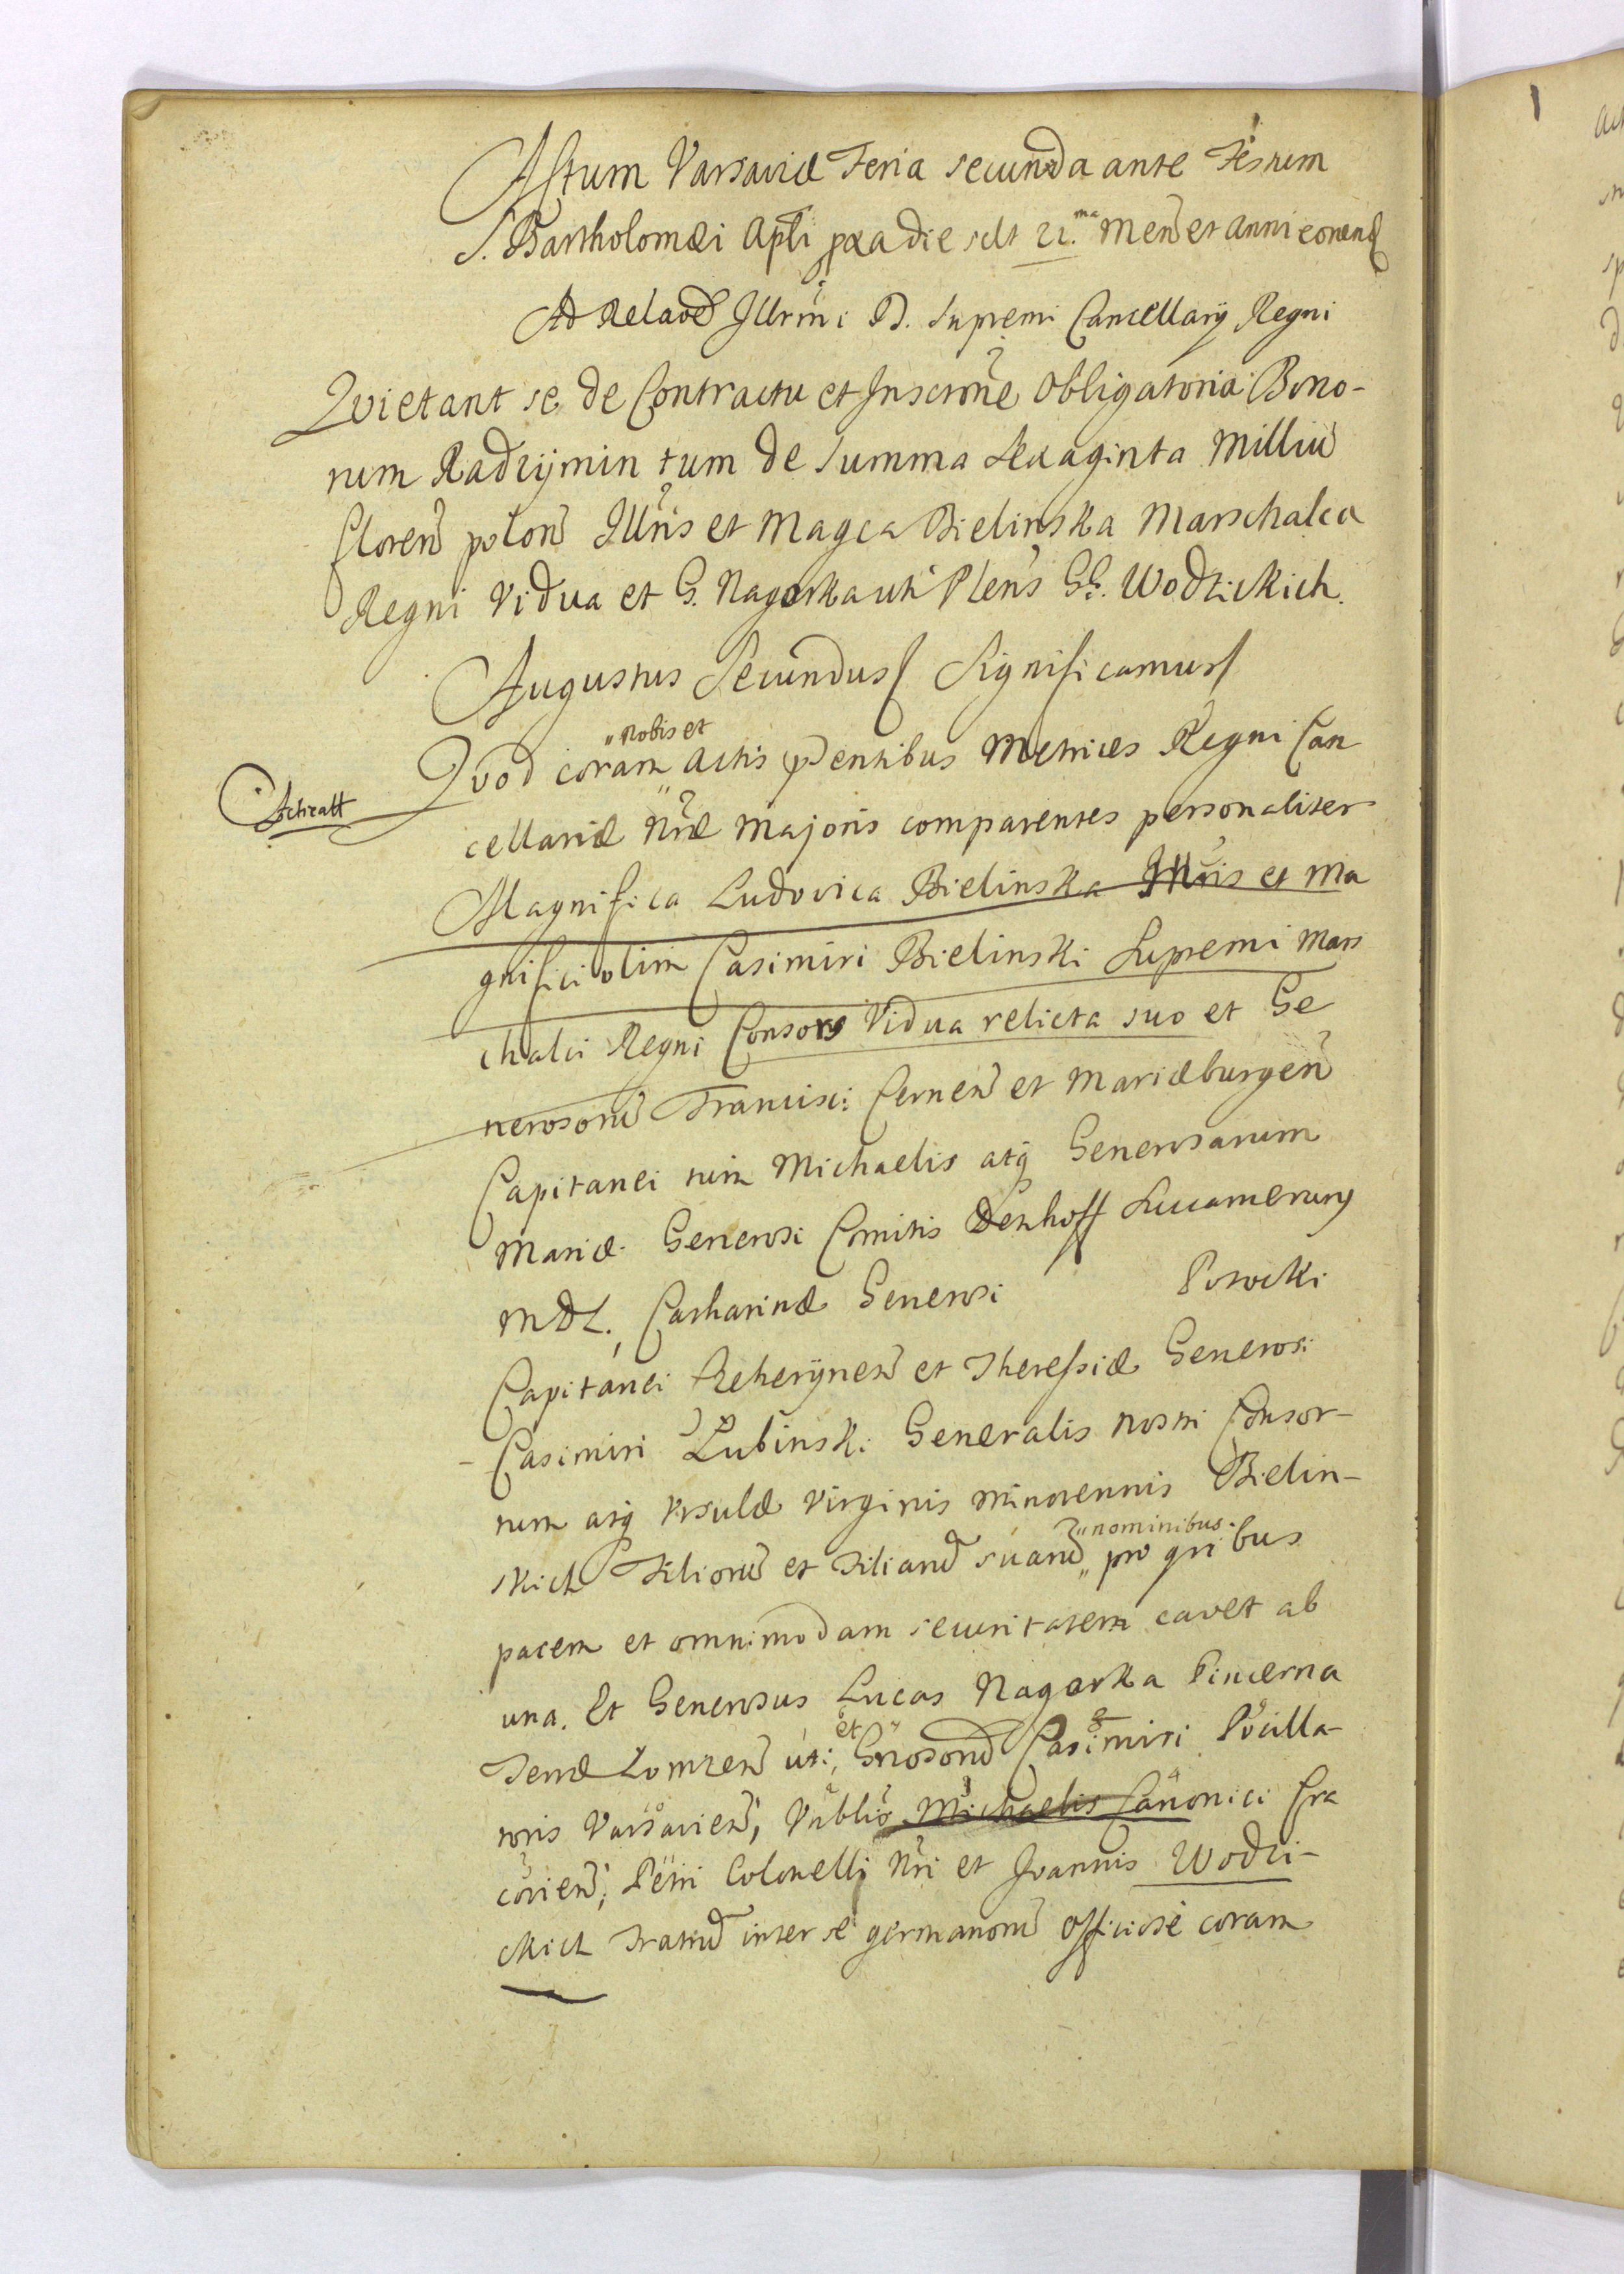 Actum Varsaviæ Feria secunda ante Festum
S. Bartholomæi Apli pxa die sclt 21.ma Mens et Anni eorund
Ad Relaoē Illrmi D. Supremi Cancellarÿ Regni
Qvietant se de Contractu et Inscrōne obligatoria Bono-
rum Radzÿmin tum de summa sexaginta Milliū
floren polon Illris et Magca Bielinska Marschalca
Regni Vidua et G. Nagorka uti Plens GG. Wodzickich.
Augustus Secundus Significamus
Qvod coram "nobis et" Actis pñtibus Metrices Regni Can
Acticatt
cellariæ Nræ Majoris comparentes personaliter
Magnifica Ludovica Bielinska Illris et Ma
gnifici olim Casimiri Bielinski Supremi Mars
chalci Regni Consors Vidua relicta suo et Ge
nerosorū Francisci Cernen et Mariæburgen
Capitanei tum Michaelis atq Generosarum
Mariæ Generosi Comitis Denhoff Succamerarÿ
MDL. Catharinæ Generosi Potocki
Capitanei Treherÿnen et Theressiæ Generosi
Casimiri Lubinski Generalis nostri Consor-
tum atq Ursulæ Virginis minorennis Bielin-
skich Filiorū et Filiarū suarū "nominibus" pro qribus
pacem et omnimodam securitatem cavet ab
una. Et Generosus Lucas Nagorka Pincerna
Terræ Lomzen uti et Gnosorū Casimiri Pocilla-
toris Varsavien, Michaelis Canonici Cra
covien, Petri Colonelli Nri et Joannis Wodzi-
ckich Fratrū inter se germanorū officiose coram